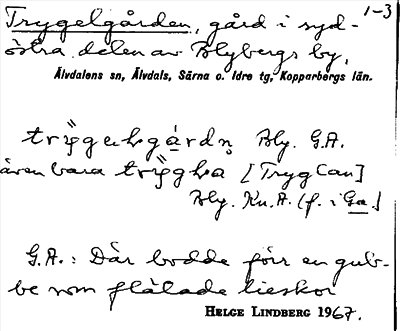 Trygelgården, gård i syd- 1-3
östra delen av Blybergs by,
Älvdalens sn, Älvdals, Särna o. Idre tg, Kopparbergs län.
Bly. G.A.
även bara [Tryglan]
Bly. Kn.A. (f. i Ga.)
G.A.: Där bodde förr en gub-
be som flätade lieskor
HELGE LINDBERG 1967.